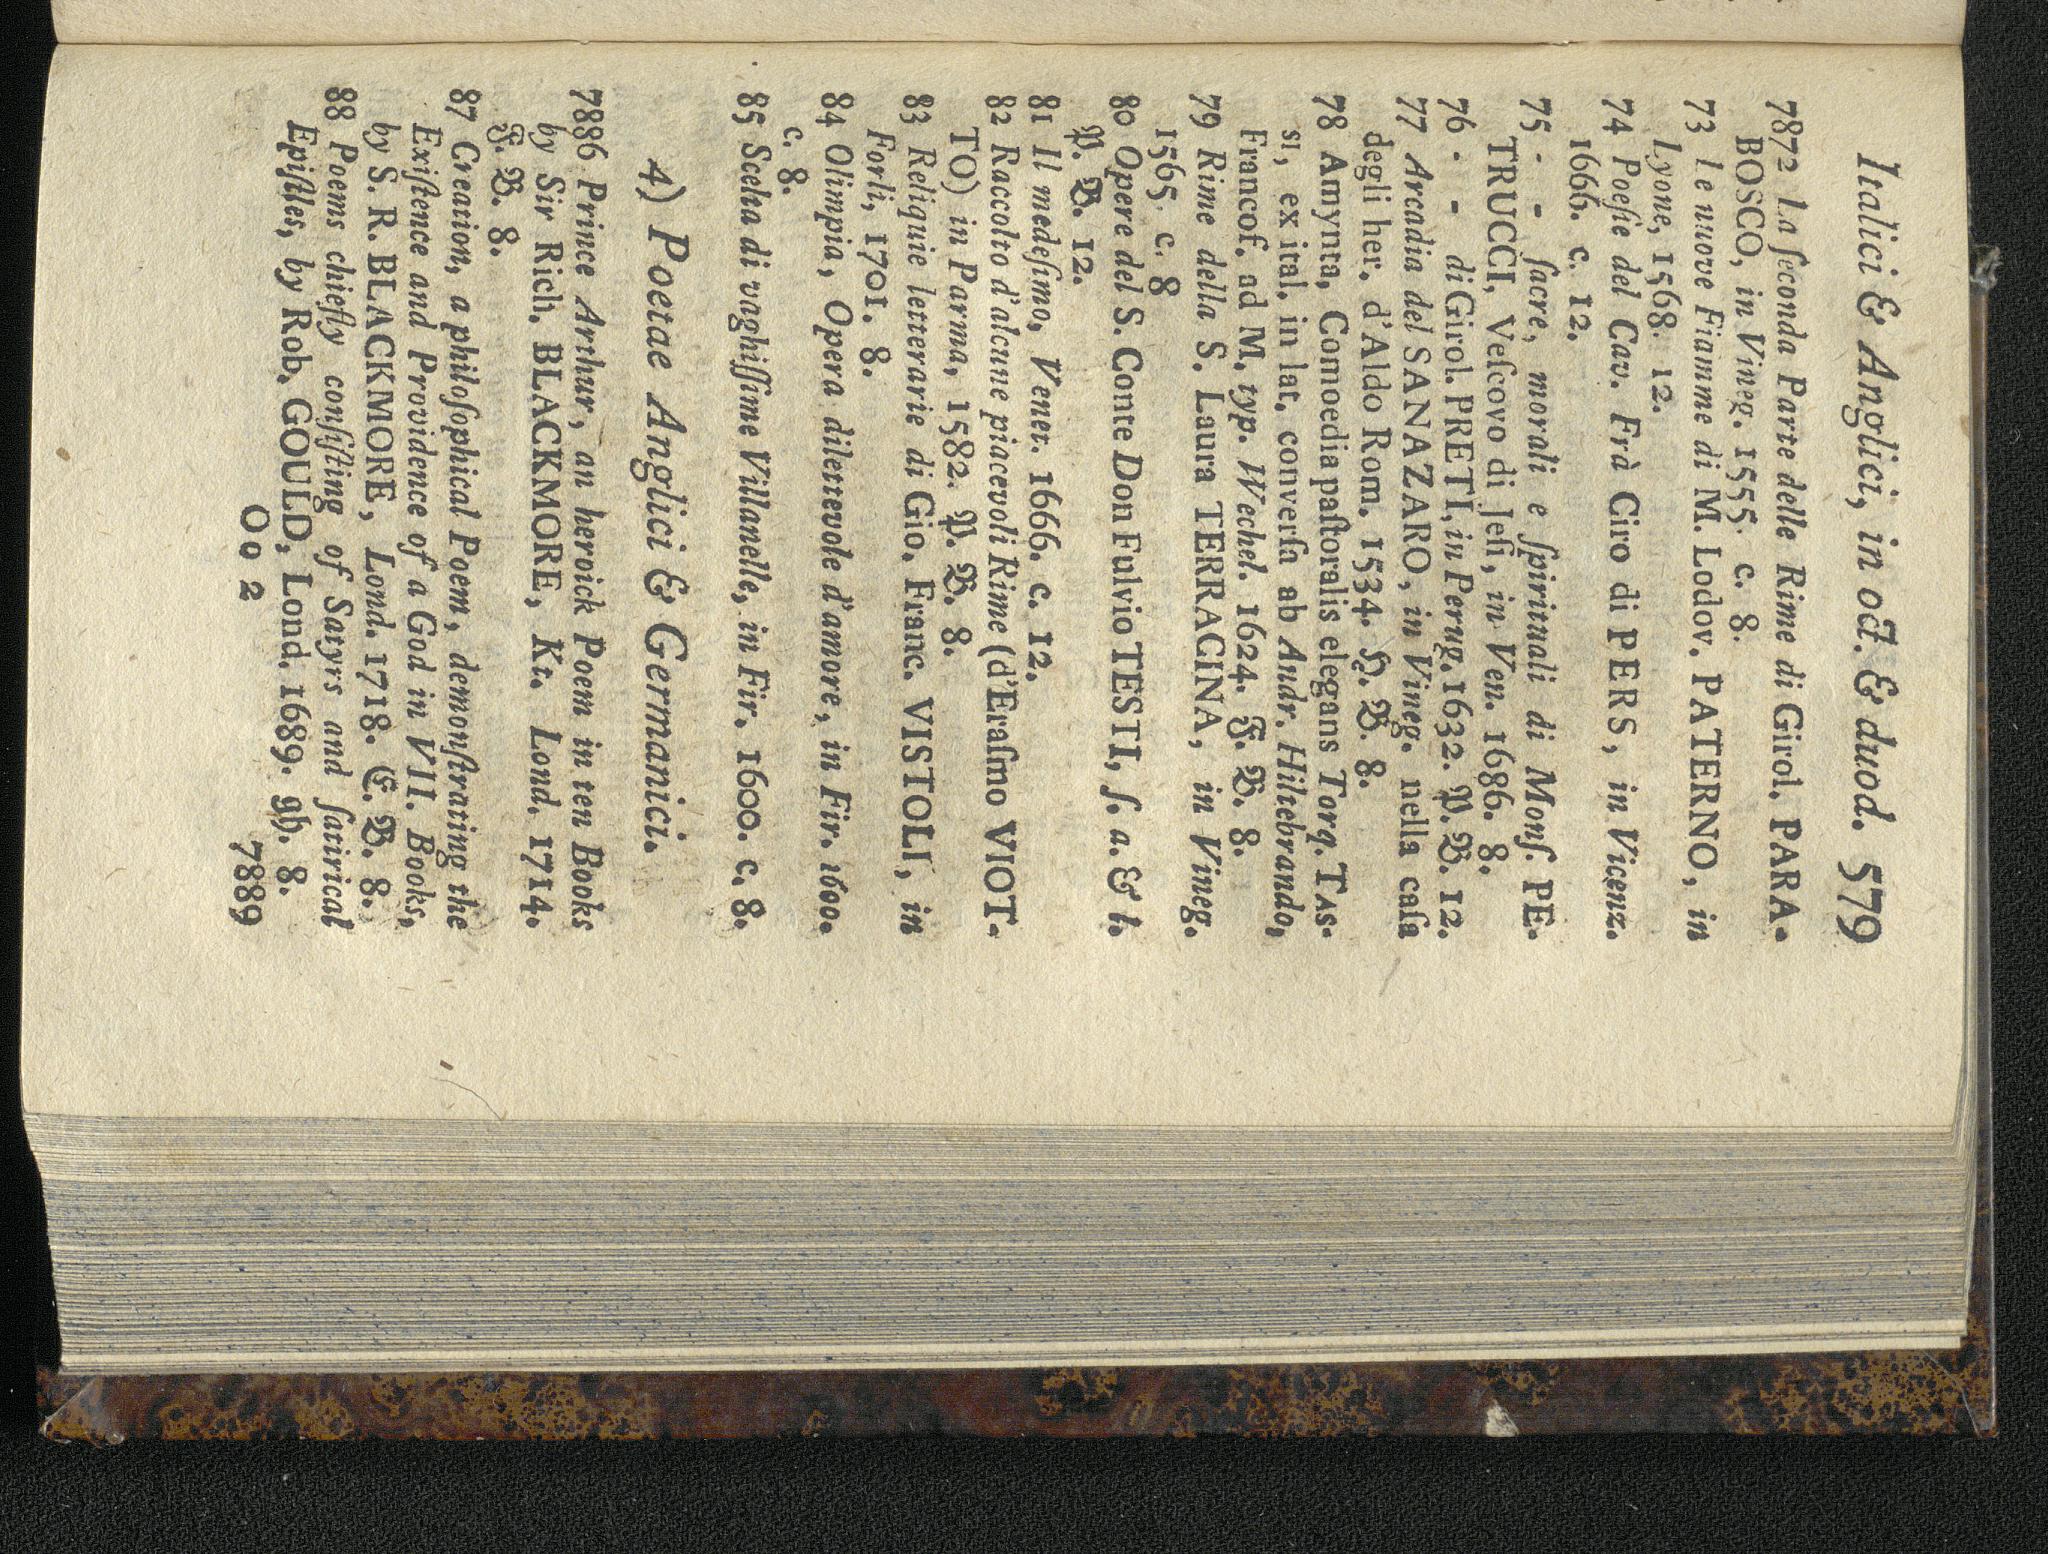 Italici & Anglici, in oct. & duod. 579
7872 La ſeconda Parte delle Rime di Girol. PARA-
BOSCO, in Vineg. 1555. c. 8.
73 Le nuove Fiamme di M. Lodov. PATERNO, in
Lyone, 1568. 12.
74 Poeſie del Cav. Frà Ciro di PERS, in Vicenz.
1666. c. 12.
75 - - ſacre, morali e ſpirituali di Monſ. PE-
TRUCCI, Veſcovo di Jeſi, in Ven. 1686. 8.
76 - - di Girol. PRETI, in Perug. 1632. P. B. 12.
77 Arcadia del SANAZARO, in Vineg. nella caſa
degli her. d'Aldo Rom. 1534. H. B. 8.
78 Amynta, Comoedia paſtoralis elegans Torq. TAS-
SI, ex ital. in lat. converſa ab Andr. Hiltebrando,
Francof. ad M. typ. Wechel. 1624. F. B. 8.
79 Rime della S. Laura TERRACINA, in Vineg.
1565. c. 8
80 Opere del S. Conte Don Fulvio TESTI, ſ. a. & l.
P. B. 12.
81 Il medeſimo, Venet. 1666. c. 12.
82 Raccolto d'alcune piacevoli Rime (d'Eraſmo VIOT-
TO) in Parma, 1582. P. B. 8.
83 Reliquie letterarie di Gio. Franc. VISTOLI, in
Forli, 1701. 8.
84 Olimpia, Opera dilettevole d'amore, in Fir. 1600.
c. 8.
85 Scelta di vaghiſſime Villanelle, in Fir. 1600. c. 8.
4) Poetae Anglici & Germanici.
7886 Prince Arthur, an heroick Poem in ten Books
by Sir Rich. BLACKMORE, Kt. Lond. 1714.
F. B. 8.
87 Creation, a philoſophical Poem, demonſtrating the
Exiſtence and Providence of a God in VII. Books,
by S. R. BLACKMORE, Lond. 1718. E. B. 8.
88 Poems chiefly conſiſting of Satyrs and ſatirical
Epiſtles, by Rob. GOULD, Lond. 1689. 8.
Oo 2
7889